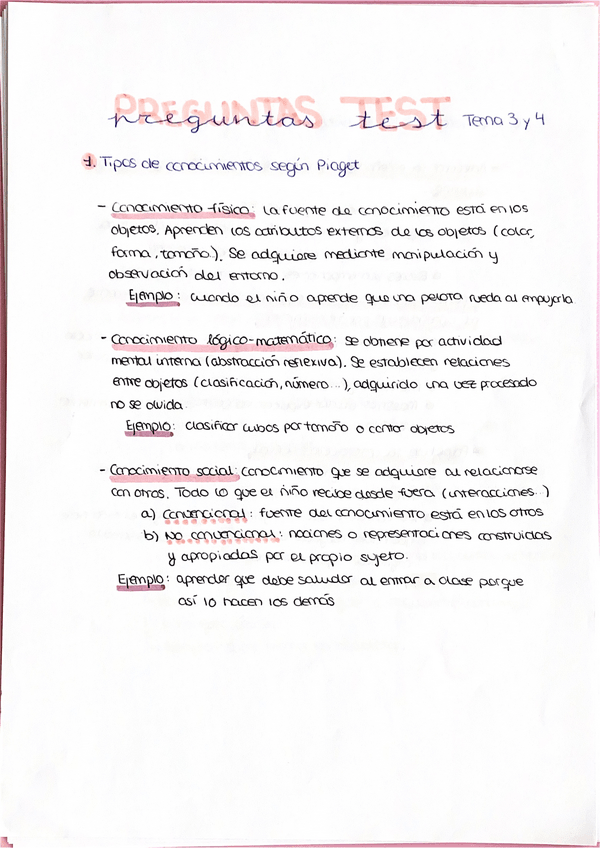 PREGUNTAS TEST
preguntas test Tema 3 y 4
1. Tipos de conocimientos según Piaget
- Conocimiento físico: la fuente de conocimiento está en los
objetos. Aprenden los atributos externos de los objetos (color,
forma, tamaño.). Se adquiere mediante manipulación y
observación del entorno.
Ejemplo: cuando el niño aprende que una pelota rueda al empujarla
- Conocimiento lógico-matemático: se obtiene por actividad
mental interna (abstracción reflexiva). Se establecen relaciones
entre objetos (clasificación, número...), adquirido una vez procesado
no se olvida.
Ejemplo: clasificar cubos por tamaño o contar objetos
- Conocimiento social: conocimiento que se adquiere al relacionarse
con otros. Todo lo que el niño recibe desde fuera (interacciones...)
a) Convencional: fuente del conocimiento está en los otros
b) No convencional: nociones o representaciones construidas
y apropiadas por el propio sujeto.
Ejemplo: aprender que debe saludar al entrar a clase porque
así lo hacen los demás